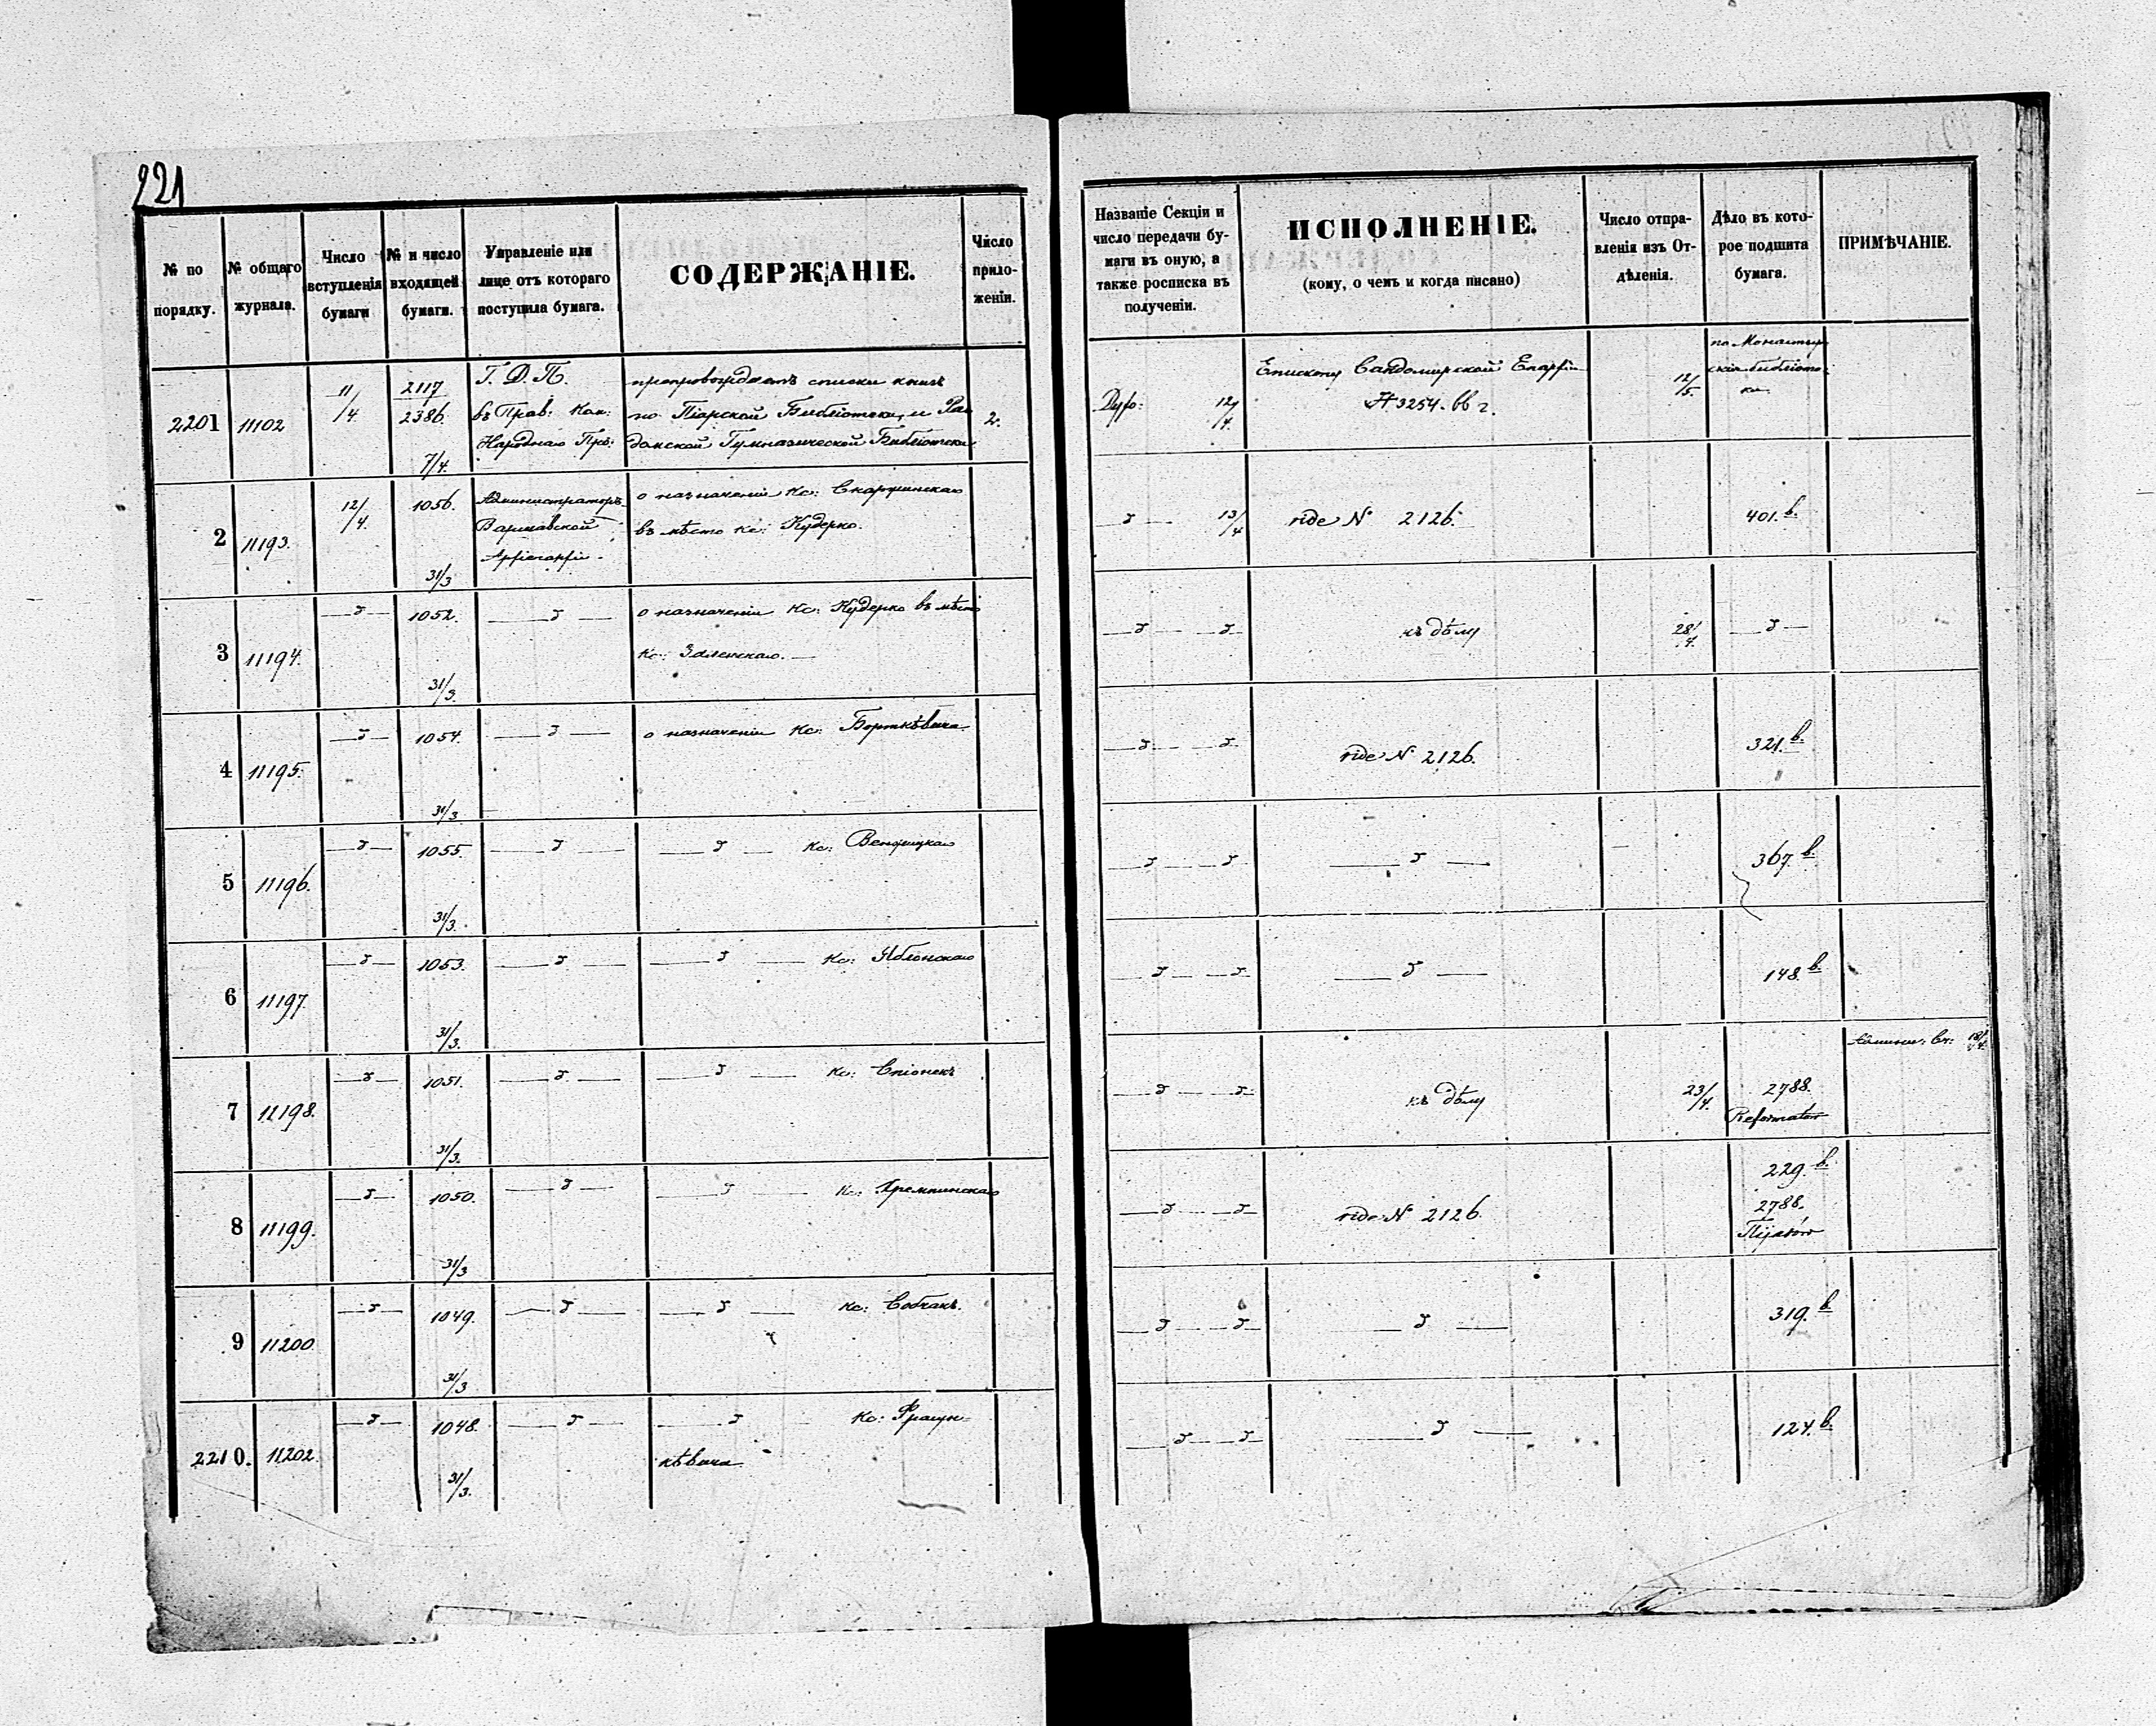 221
№ по порядку.
№ общаго журнала.
Число вступленія бумаги
№ и число входящей бумаги.
Управленіе или лице отъ котораго поступила бумага.
СОДЕРЖАНІЕ.
Число приложеніи.
Названіе Секціи и число передачи бумаги въ оную, а также росписка въ полученіи.
ИСПОЛНЕНІЕ.
(кому, о чемъ и когда писано)
Число отправленія изъ Отдѣленія.
Дѣло въ которое подшита бумага.
ПРИМѢЧАНІЕ.
2201 11102 11/4 2117 2386 7/4
Г. Д. П.
въ Прав: Ком:
Народнаго Пр:
препровождаетъ списки книгъ
по Піарской Библіотеки, и Ра
домской Гимназической Библіотеки
2.
12/4
Епископу Сандомирской Епархіи
№ 3254. 66 г.
12/5.
по Монастыр
скія библіоте
ки
2 11193. 12/4. 1056. 31/3
Администраторъ
Варшавской
Архіепархіи
о назначеніи Кс:
въ мѣсто Кс: Кудерко.
д 13/4
vide № 2126.
401. b.
3 11194. д 1052. 31/3. д
о назначеніи Кс: Кудерко въ мѣсто
Кс: Заленскаго.
д д
къ дѣлу
28/4.
д
4 11195. д 1054. 31/3 д
о назначеніи Кс: Борткѣвича
д д
vide № 2126.
321. b.
5 11196. д 1055. 31/3. д
д Кс:
д д
д
367. b.
6 11197. д 1053. 31/3. д
д Кс: Яблонскаго
д д
д
148. b.
7 11198. д 1051. 31/3. д
д Кс: Спіонекъ
д д
къ дѣлу
23/4.
2788.
Reformatów
18/4.
8 11199. д 1050. 31/3 д
д Кс:
д д
vide № 2126.
229. b.
2788.
Pijarów
9 11200. д 1049. 31/3 д
д Кс: Собчакъ.
д д
д
319. b.
2210. 11202. д 1048. 31/3. д
д Кс:
кѣвича
д д
д
124. b.